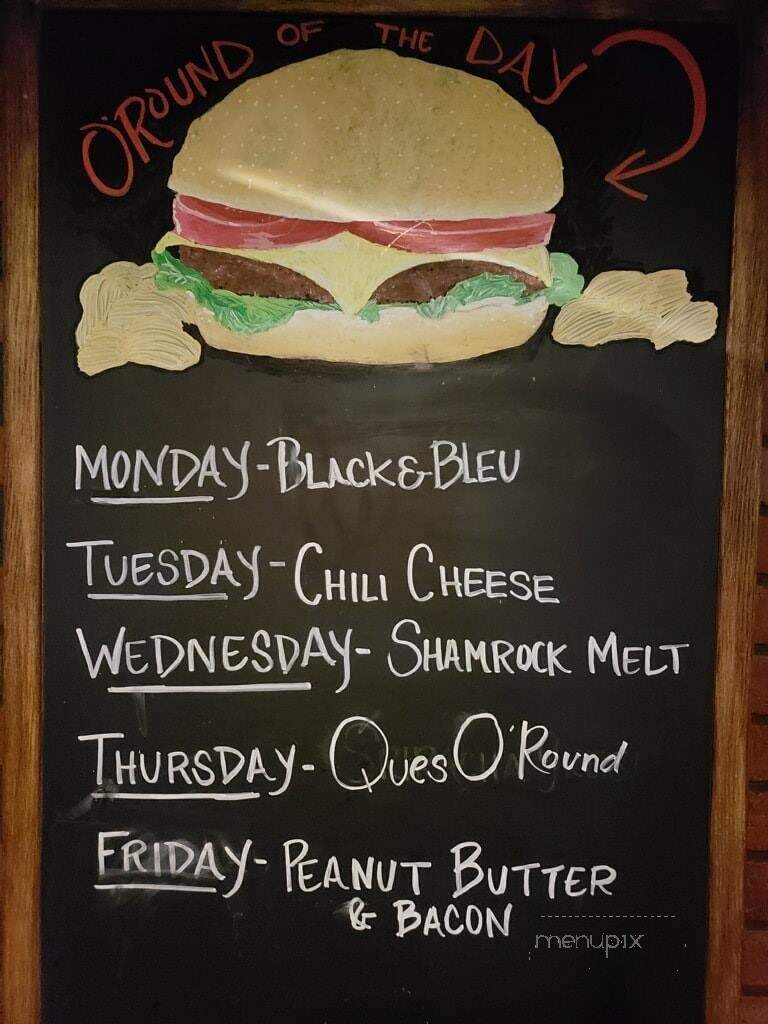 O'ROUND OF THE DAY
MONDAY-BLACK&BLEU
TUESDAY-CHILI CHEESE
WEDNESDAY-SHAMROCK MELT
THURSDAY-QUESO'ROUND
FRIDAY-PEANUT BUTTER
& BACON
menupix